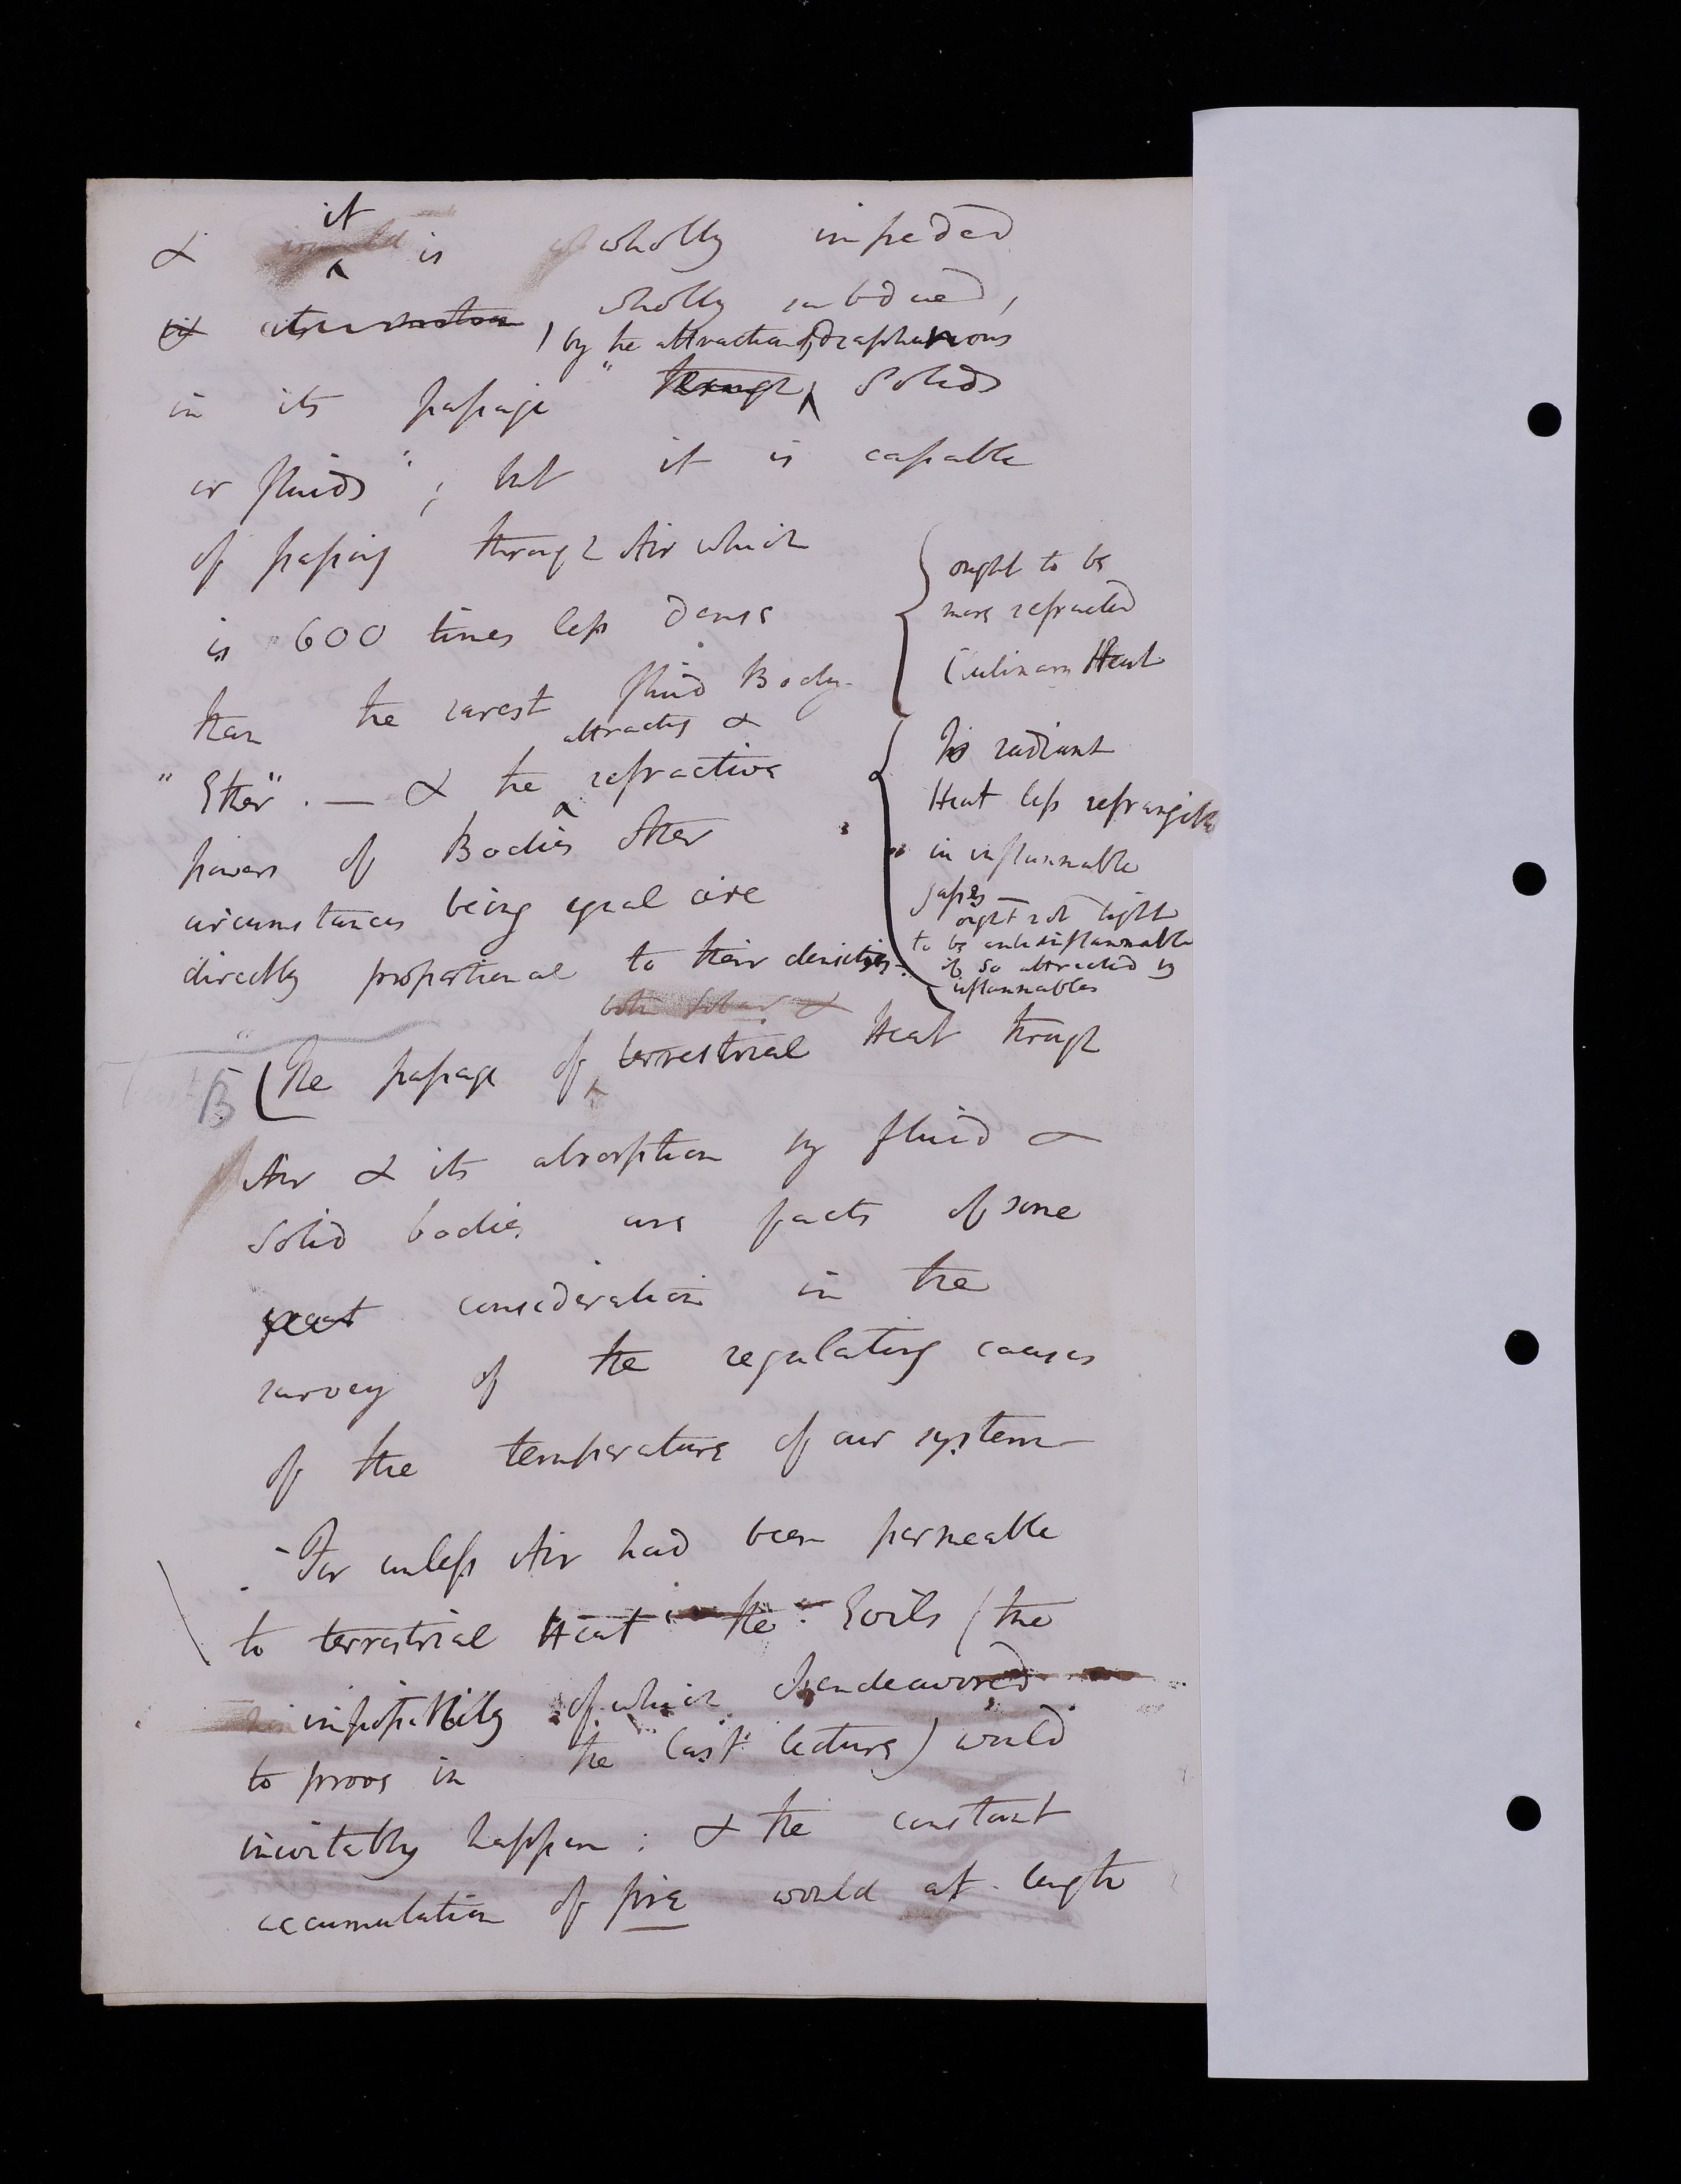 it
& is wholly impeded
wholly subdued,
by the attraction of diaphanous
in its passage " through Solids
or fluids"; but it is capable
of passing through Air which
is 600 times less dense
than the rarest fluid Body
attractive &
"Ether". — & the refractive
powers of Bodies other
circumstances being equal are
directly proportional to their densities.
both Solar &
(The passage of terrestrial Heat through
Air & its absorption by fluid &
Solid bodies are facts of some
great consideration in the
survey of the regulating causes
of the temperature of our system
- For unless Air had been permeable
to terrestrial Heat the Evils (the
impossibility of which I endeavored
to prove in the last lecture) would
inevitably happen: & the constant
accumulation of fire would at length
ought to be
more refracted
Culinary Heat
Is radiant
Heat less refrangible
in inflammable
gasses —
ought not light
to be inflammable
if so attracted by
inflammables
B